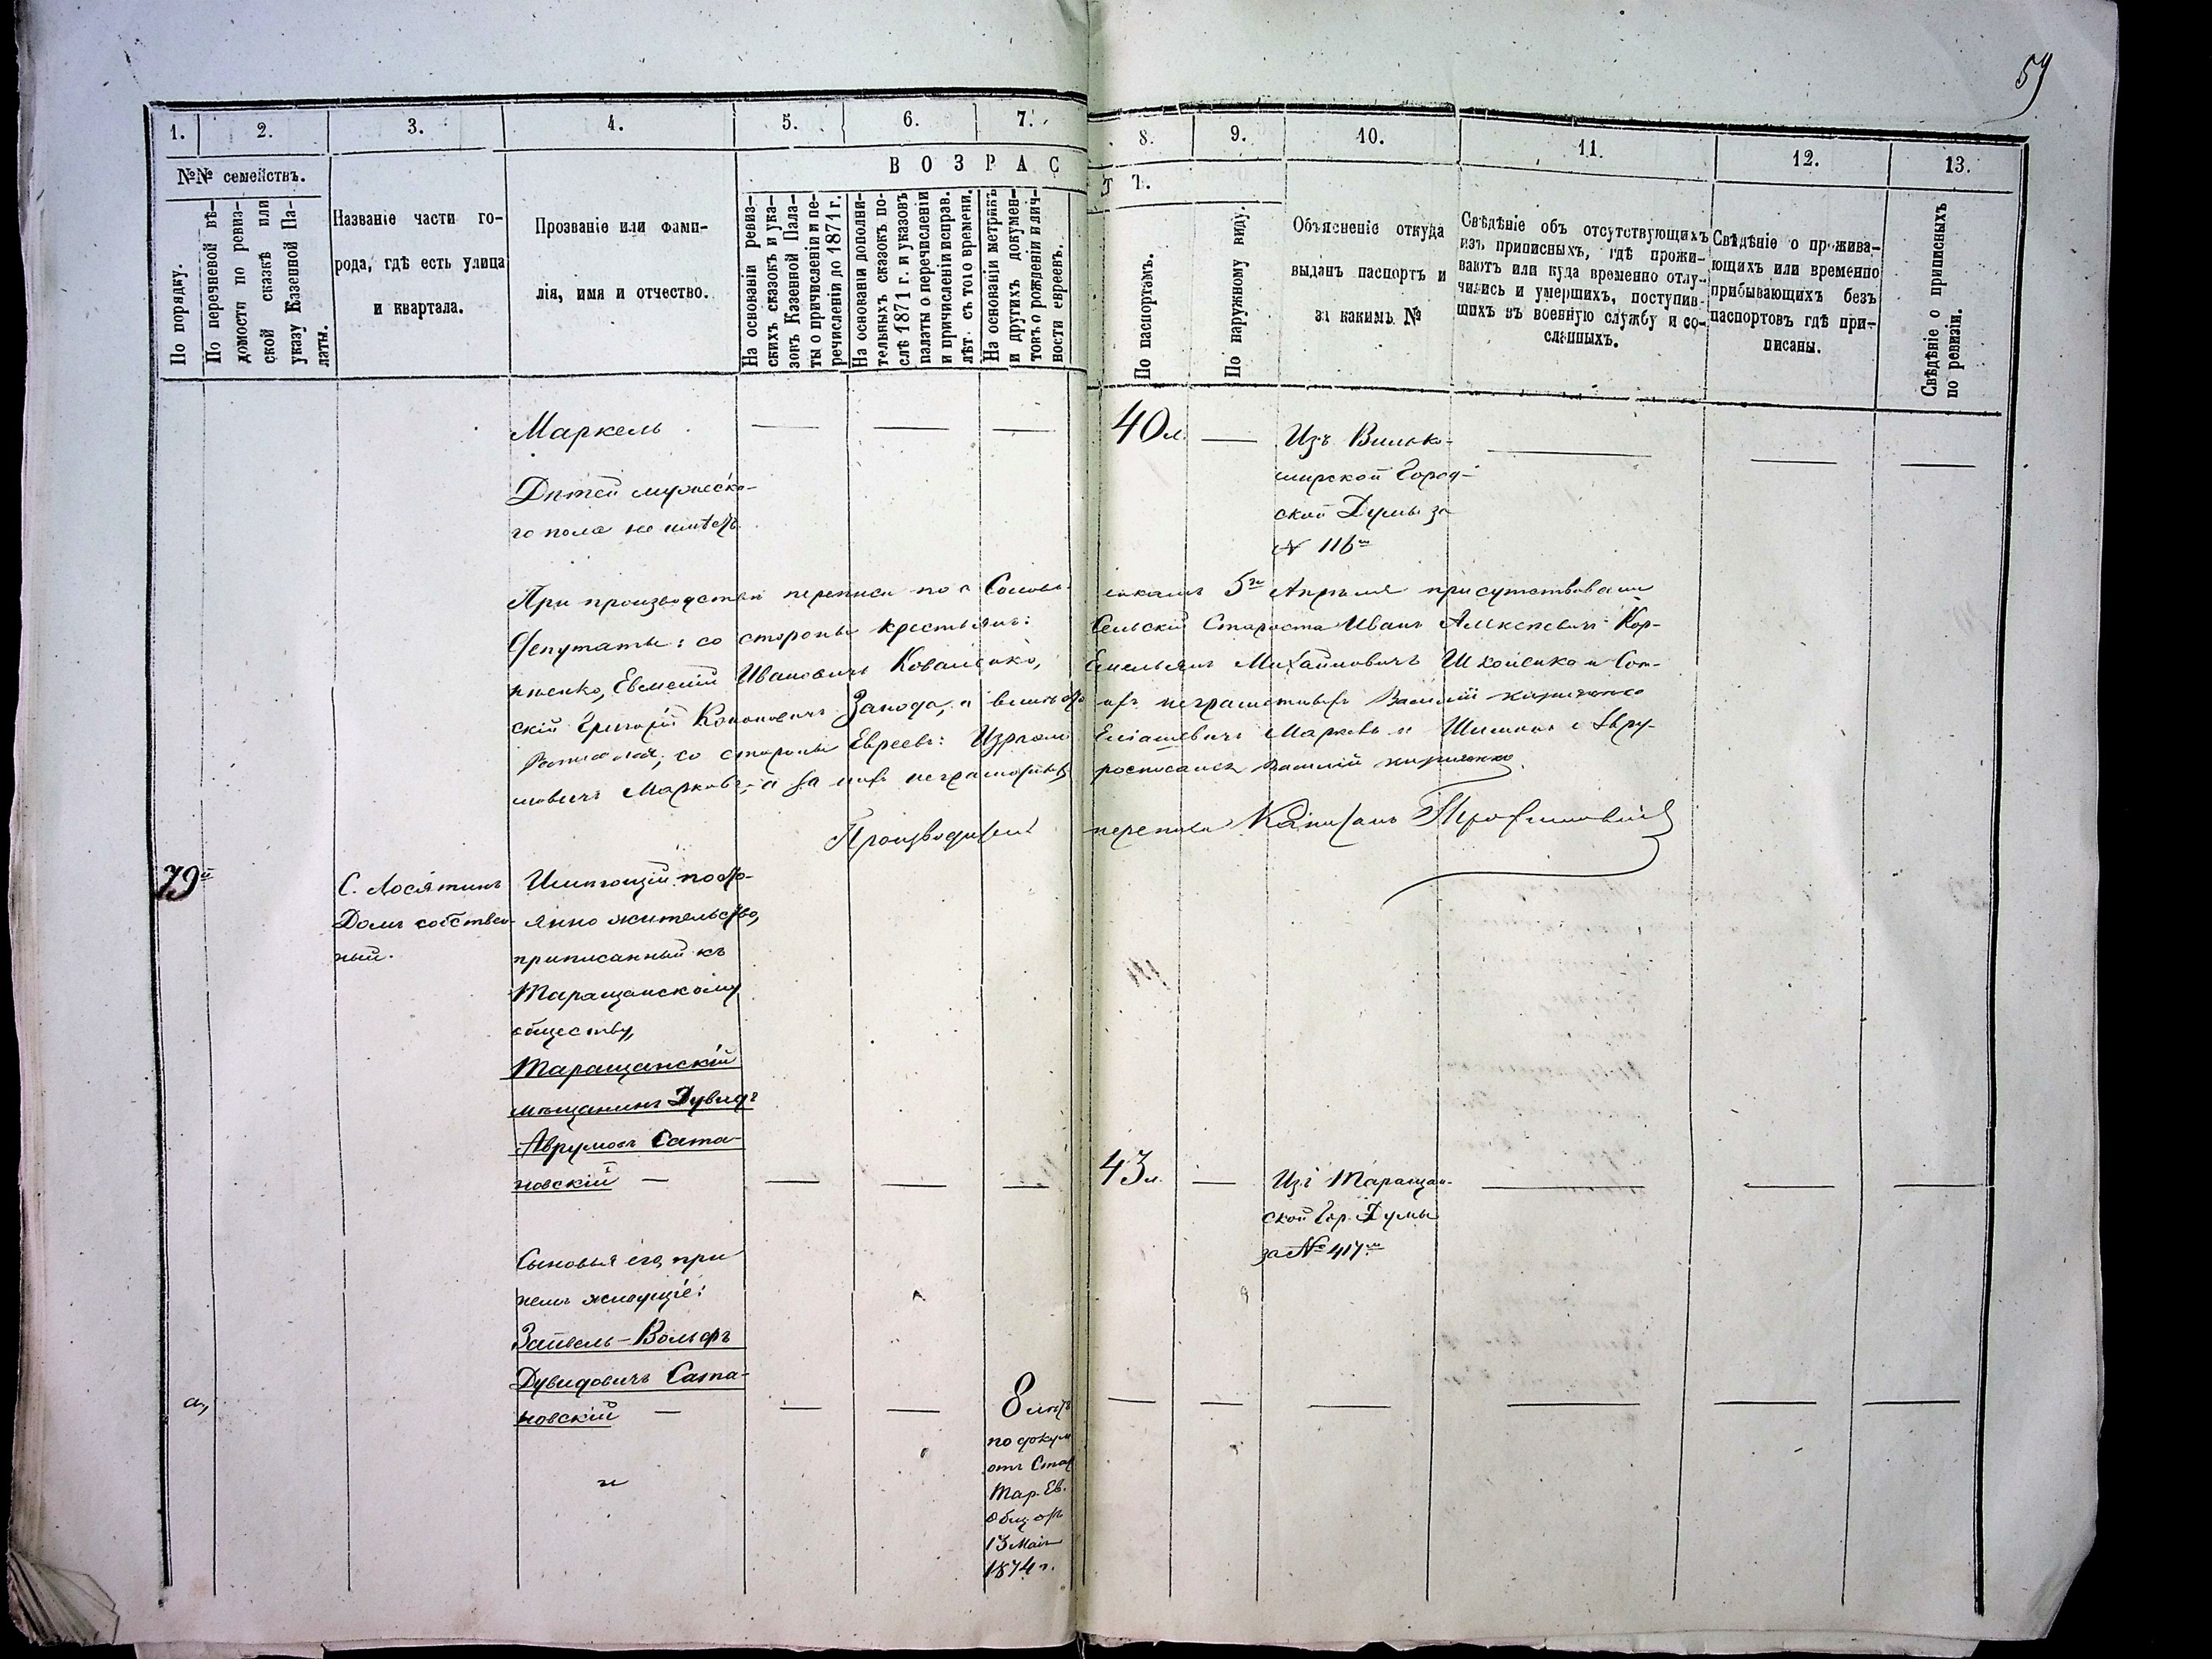 59
1.
2.
3.
4.
5.
6.
7.
8.
9.
10.
11.
12.
13.
№№ семействъ.
ВОЗРАС
Т Ъ.
По порядку.
По перечневой вѣ-
домости по ревиз-
ской сказкѣ или
указу Казенной Па-
латы.
Названіе части го-
рода, гдѣ есть улица
и квартала.
Прозваніе или фами-
лія, имя и отчество.
На основаніи ревиз-
скихъ сказокъ и ука-
зовъ Казенной Пала-
ты о причисленіи и пе-
речисленіи до 1871 г.
На основаніи дополни-
тельныхъ сказокъ по-
слѣ 1871 г. и указовъ
палаты о перечисленіи
и причисленіи исправ.
лѣт. съ того времени.
На основаніи метрикъ
и другихъ докумен-
товъ о рожденіи и лич-
ности евреевъ.
По паспортамъ.
По наружному виду.
Объясненіе откуда
выданъ паспортъ и
за какимъ №
Свѣдѣніе объ отсутствующихъ
изъ приписныхъ, гдѣ прожи-
ваютъ или куда временно отлу-
чились и умершихъ, поступив-
шихъ въ военную службу и со-
сланныхъ.
Свѣдѣніе о прожива-
ющихъ или временно
прибывающихъ безъ
паспортовъ гдѣ при-
писаны.
Свѣдѣніе о приписныхъ
по ревизіи.
Маркель
40 л.
Изъ Вилько-
мирской Город-
ской Думы за
№ 116
Дѣтей мужеска-
го пола не имѣетъ
При производствѣ переписи по с 5го Апрѣля присутствовали
Депутаты: со стороны крестьянъ: Сельскій Староста Иванъ Алексѣевичъ Кор-
пѣенко, Евменій Ивановичъ Коваленко, Емельянъ Михайловичъ и Сот-
скій Григорій Кононовичъ неграмотныхъ Василій
со стороны Евреевъ: Еліашевичъ Марковъ и Шимонъ Авру-
мовичъ Марковъ, а за нихъ неграмотныхъ росписался Василій
Производитель переписи Капитанъ
79й
С. Лосятинъ
Домъ собствен-
ный.
Имѣющій посто-
янно жительство,
приписанный къ
Таращанскому
обществу,
Таращанскій
мѣщанинъ Дувидъ
Аврумовъ Сата-
новскій —
43 л.
Изъ Таращан-
ской Гор. Думы
за № 417
Сыновья его, при
немъ живущіе:
а,
Зайвель-Вольфъ
Дувидовичъ Сата-
новскій —
8 лѣтъ
по докум
отъ Стар
Тар. Ев.
Общ. отъ
13 Мая
1874 г.
и